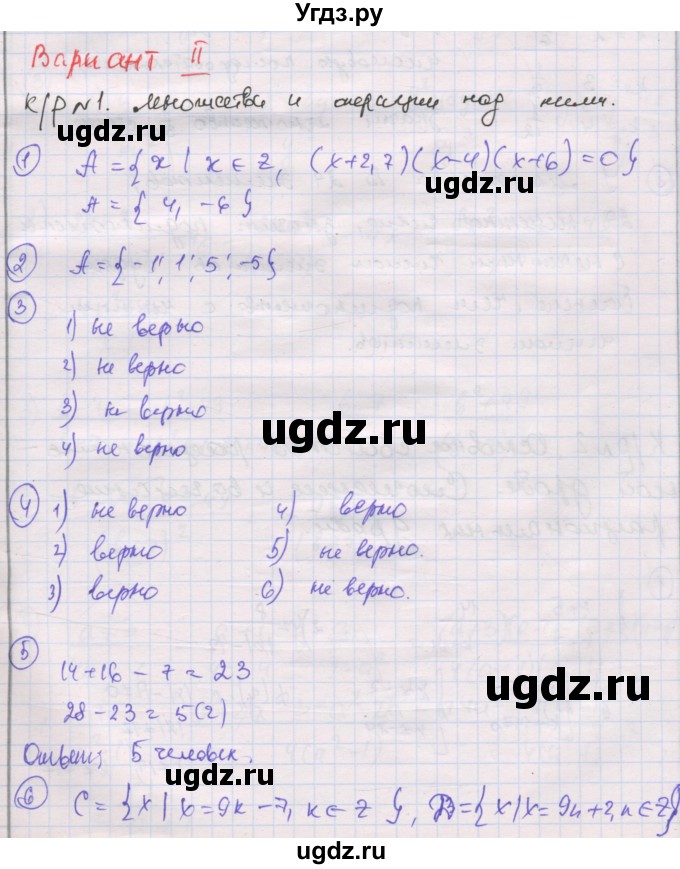 Угдз.ру
Вариант II
К/р №1. Множества и операции над ними.
ugdz.ru
ugdz.ru
① A = { x | x ∈ Z, (x+2,7)(x-4)(x+6)=0 }
A = { 4, -6 }
② A = { -1; 1; 5; -5 }
③
1) не верно
2) не верно
ugdz.ru
3) не верно
ugdz.ru
4) не верно
④ 1) не верно 4) верно
2) верно 5) не верно.
3) верно 6) не верно.
ugdz.ru
⑤
14+16-7=23
ugdz.ru
28-23=5(2)
Ответ: 5 человек.
ugdz.ru
⑥ C = { x | x=9k-7, k ∈ Z }, D = { x | x=9n+2, n ∈ Z }
ugdz.ru